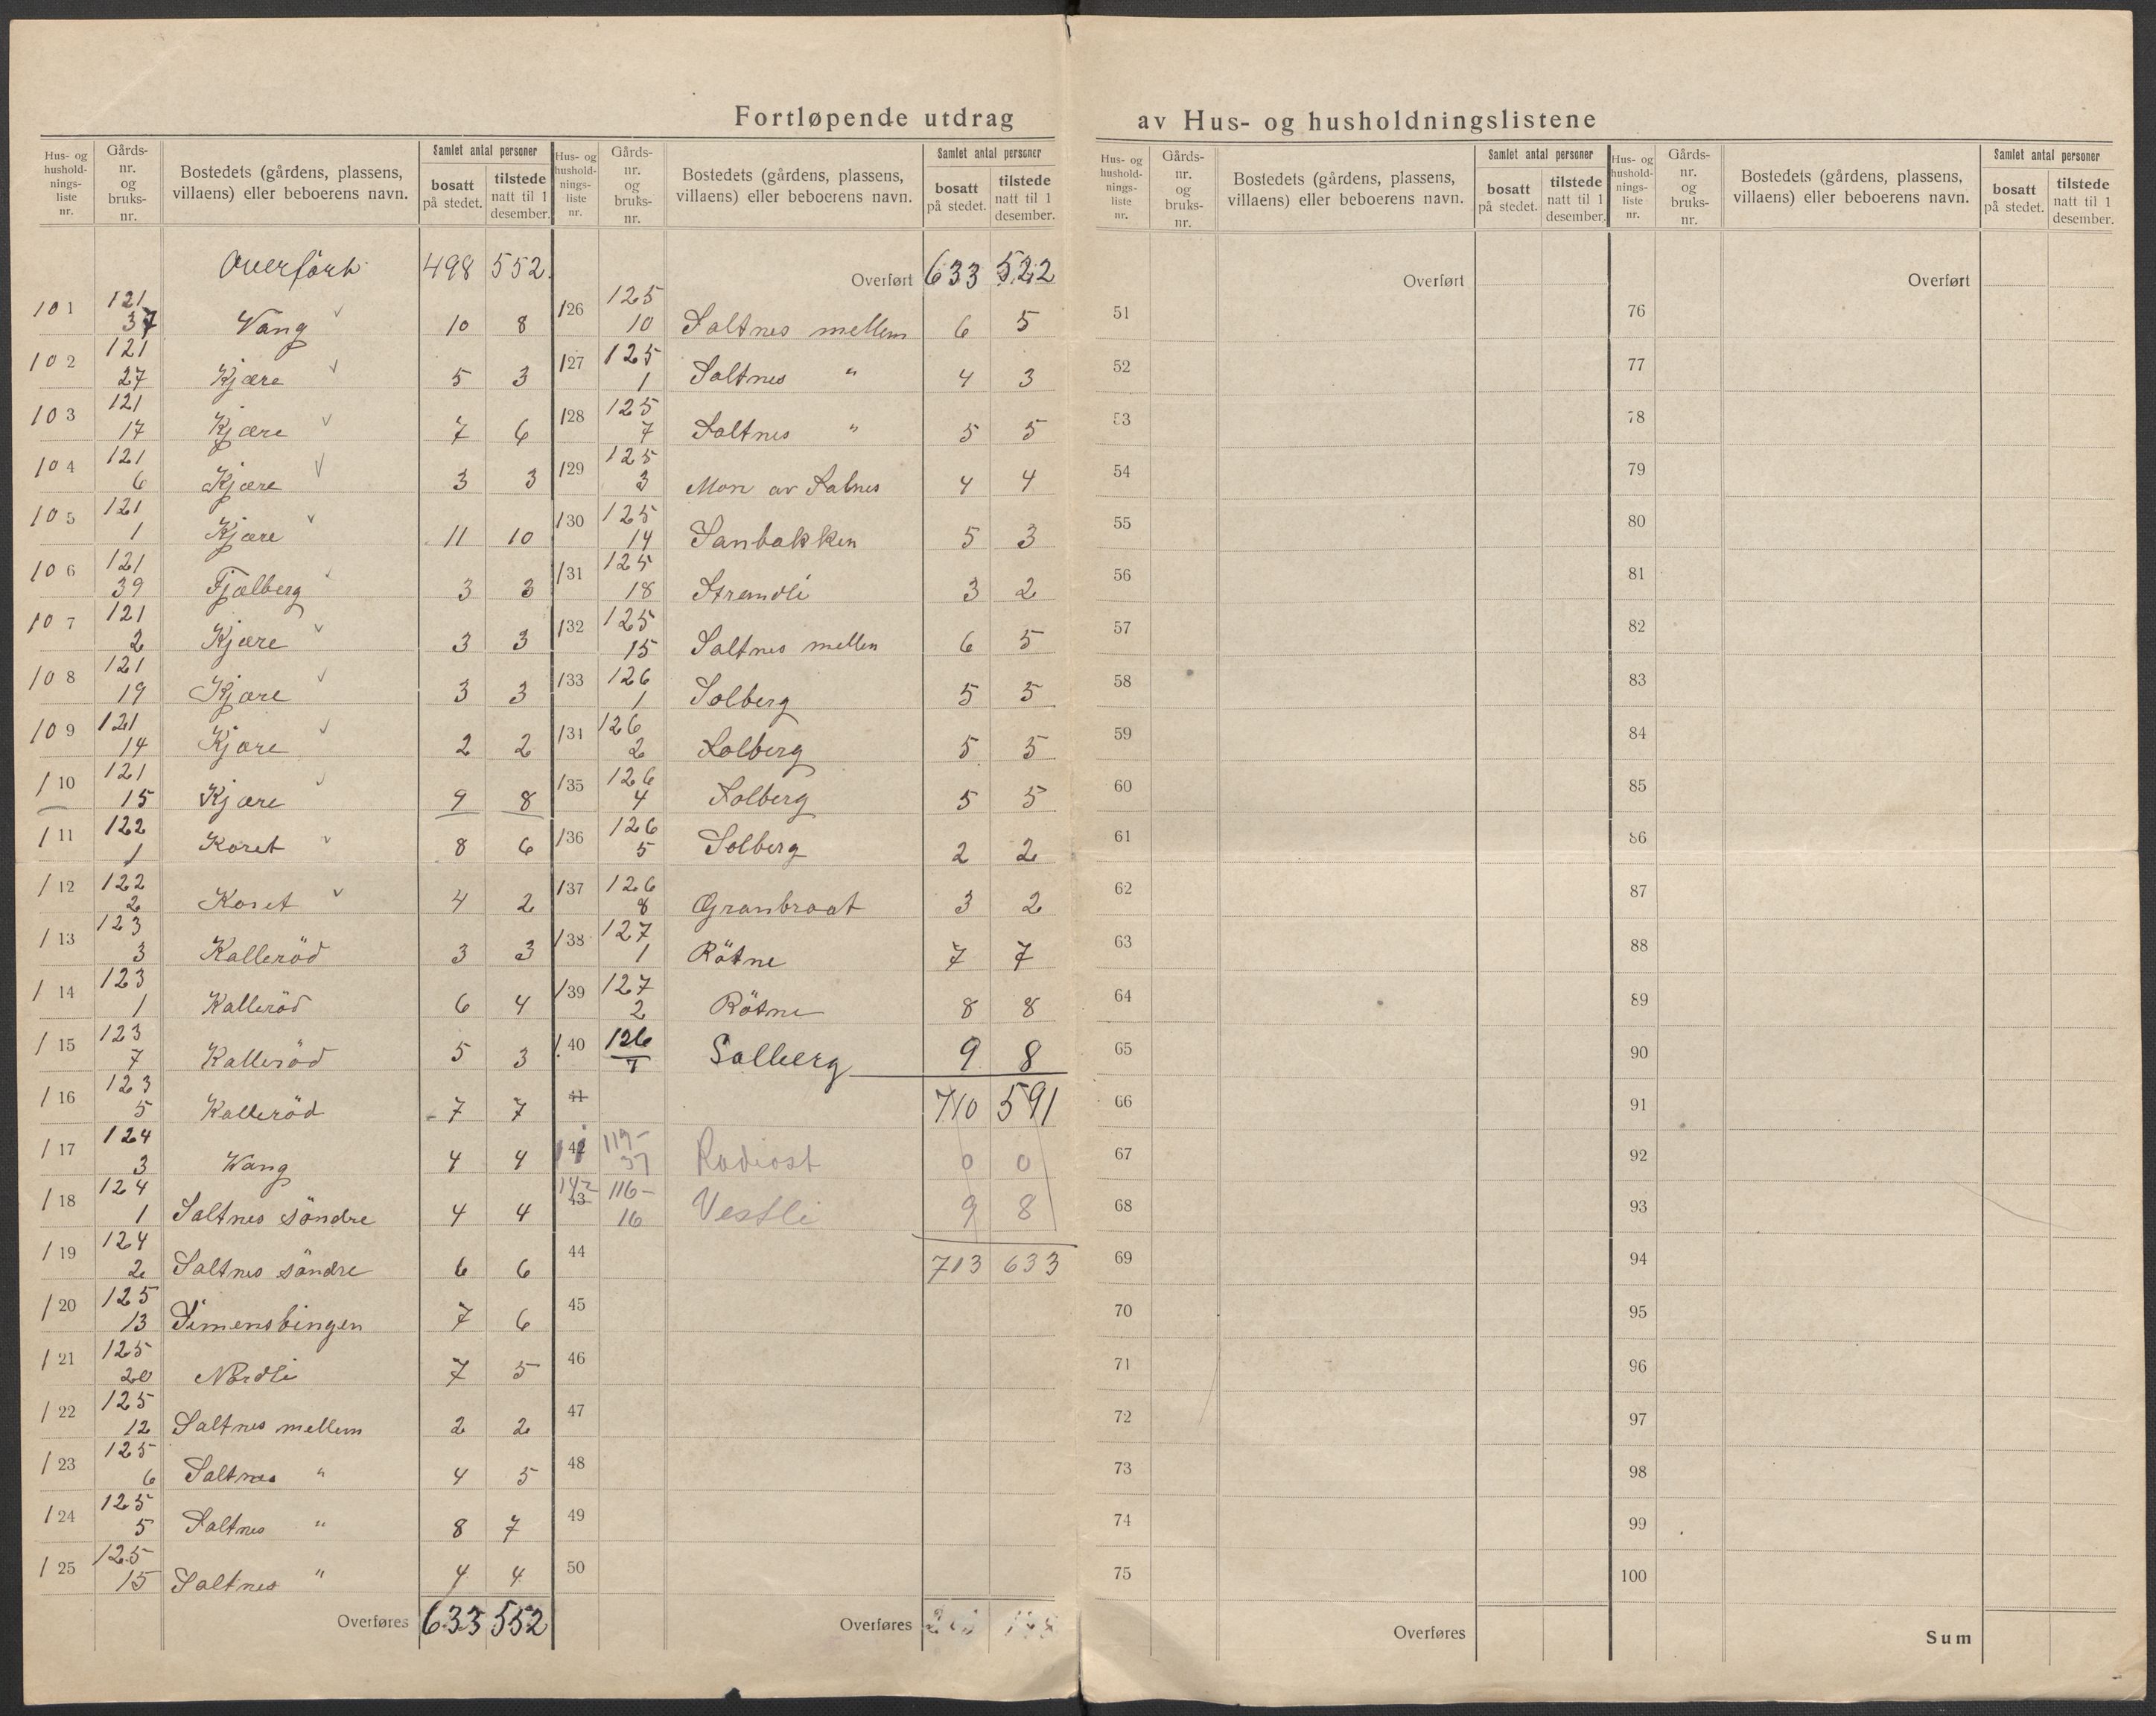 Fortløpende utdrag av Hus- og husholdningslistene
Hus- og hushold-nings-liste nr. | Gårds-nr. og bruks-nr. | Bostedets (gårdens, plassens, villaens) eller beboerens navn. | Samlet antal personer | bosatt på stedet. | tilstede natt til 1 desember.
Overført 498 552
101 121 37 Vang 10 8
102 121 27 Kjære 5 3
103 121 17 Kjære 7 6
104 121 6 Kjære 3 3
105 121 1 Kjære 11 10
106 121 39 Fjælberg 3 3
107 121 2 Kjære 3 3
108 121 19 Kjære 3 3
109 121 14 Kjære 2 2
110 121 15 Kjære 9 8
111 122 1 Koret 8 6
112 122 2 Koret 4 2
113 123 3 Kalleröd 3 3
114 123 1 Kalleröd 6 4
115 123 7 Kalleröd 5 3
116 123 5 Kalleröd 7 7
117 124 3 Wang 4 4
118 124 1 Saltnes söndre 4 4
119 124 2 Saltnes söndre 6 6
120 125 13 Simensbingen 7 6
121 125 20 Nordli 7 5
122 125 12 Saltnes mellem 2 2
123 125 6 Saltnes " 4 5
124 125 5 Saltnes " 8 7
125 125 15 Saltnes " 4 4
Overføres 633 552
Hus- og hushold-nings-liste nr. | Gårds-nr. og bruks-nr. | Bostedets (gårdens, plassens, villaens) eller beboerens navn. | Samlet antal personer | bosatt på stedet. | tilstede natt til 1 desember.
Overført 633 522
126 125 10 Saltnes mellem 6 5
127 125 1 Saltnes " 4 3
128 125 7 Saltnes " 5 5
129 125 3 Mon av Salnes 4 4
130 125 14 Sanbakken 5 3
131 125 18 Strandli 3 2
132 125 15 Saltnes mellen 6 5
133 126 1 Solberg 5 5
134 126 2 Solberg 5 5
135 126 4 Solberg 5 5
136 126 5 Solberg 2 2
137 126 8 Granbraat 3 2
138 127 1 Rötne 7 7
139 127 2 Rötne 8 8
140 126 7 Solberg 9 8
41 710 591
42 119- 37 Rodiost 0 0
142 43 116- 16 Vestli 9 8
44 713 633
45
46
47
48
49
50
Overføres
Hus- og hushold-nings-liste nr. | Gårds-nr. og bruks-nr. | Bostedets (gårdens, plassens, villaens) eller beboerens navn. | Samlet antal personer | bosatt på stedet. | tilstede natt til 1 desember.
Overført
51
52
53
54
55
56
57
58
59
60
61
62
63
64
65
66
67
68
69
70
71
72
73
74
75
Overføres
Hus- og hushold-nings-liste nr. | Gårds-nr. og bruks-nr. | Bostedets (gårdens, plassens, villaens) eller beboerens navn. | Samlet antal personer | bosatt på stedet. | tilstede natt til 1 desember.
Overført
76
77
78
79
80
81
82
83
84
85
86
87
88
89
90
91
92
93
94
95
96
97
98
99
100
Sum